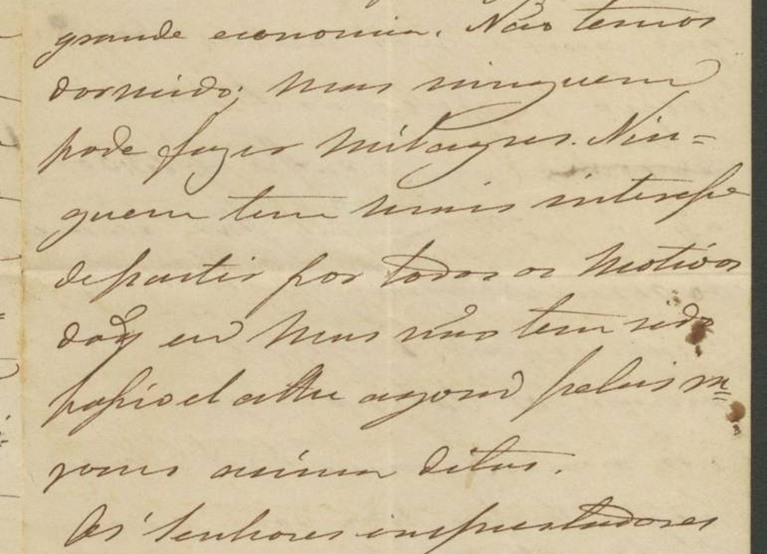 grande economia. Não temos
dormido; mas ninguem
pode fazer milagres. Nin=
guem tem mais interesse
de partir por todos os motivos
do q eu mas não tem sido
possivel athe agora pelas
acima ditas.
Os Senhores emprestadores